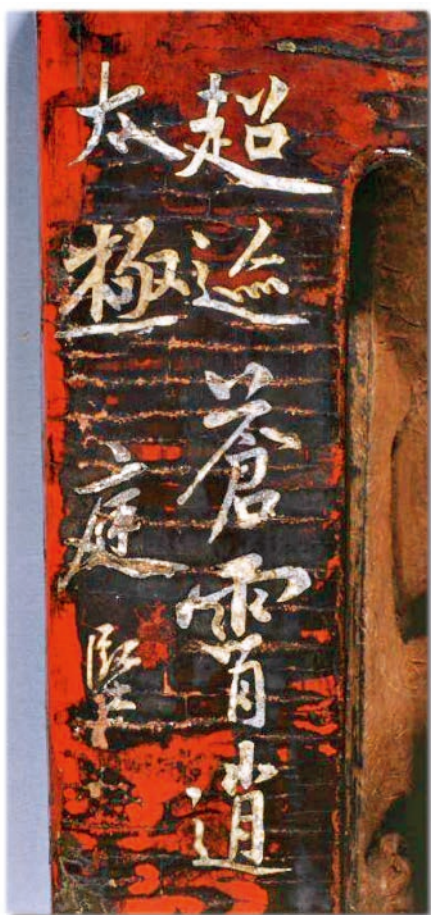 超迹蒼霄逍
太極庭堅